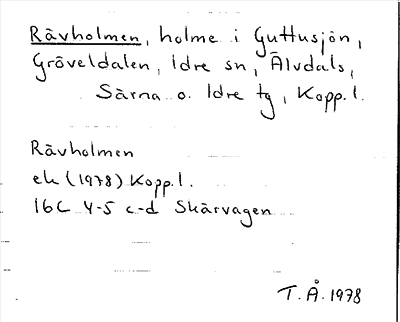 Rävholmen, holme i Guttusjön,
Gröveldalen, Idre sn, Älvdals,
Särna o. Idre tg, Kopp. l.
Rävholmen
ek (1978) Kopp. l.
16C 4-5 c-d Skärvagen
T.Å. 1978